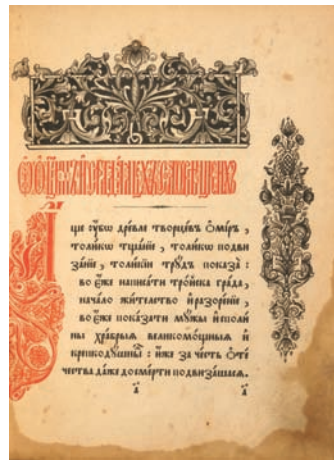 Аще ᲂу҆́бѡ дре́вле творце́въ ѻ҆ме́ръ,
толи́кѡ тща́нїе, толи́кѡ подви
за́нїе, толи́кїи трꙋ́дъ показа̀ :
во є҆́же написа́ти тро́йска гра́да,
нача́ло жи́телство и҆ разоре́нїе,
во є҆́же показа́ти мꙋ́жы и҆споли
ны хра́брыѧ великомо́щныѧ и҆
крепкодꙋ́шныѧ : и҆́же за че́сть ѻ҆те́
чества да́же до сме́рти подвиза́шасѧ.
а҃ а҃